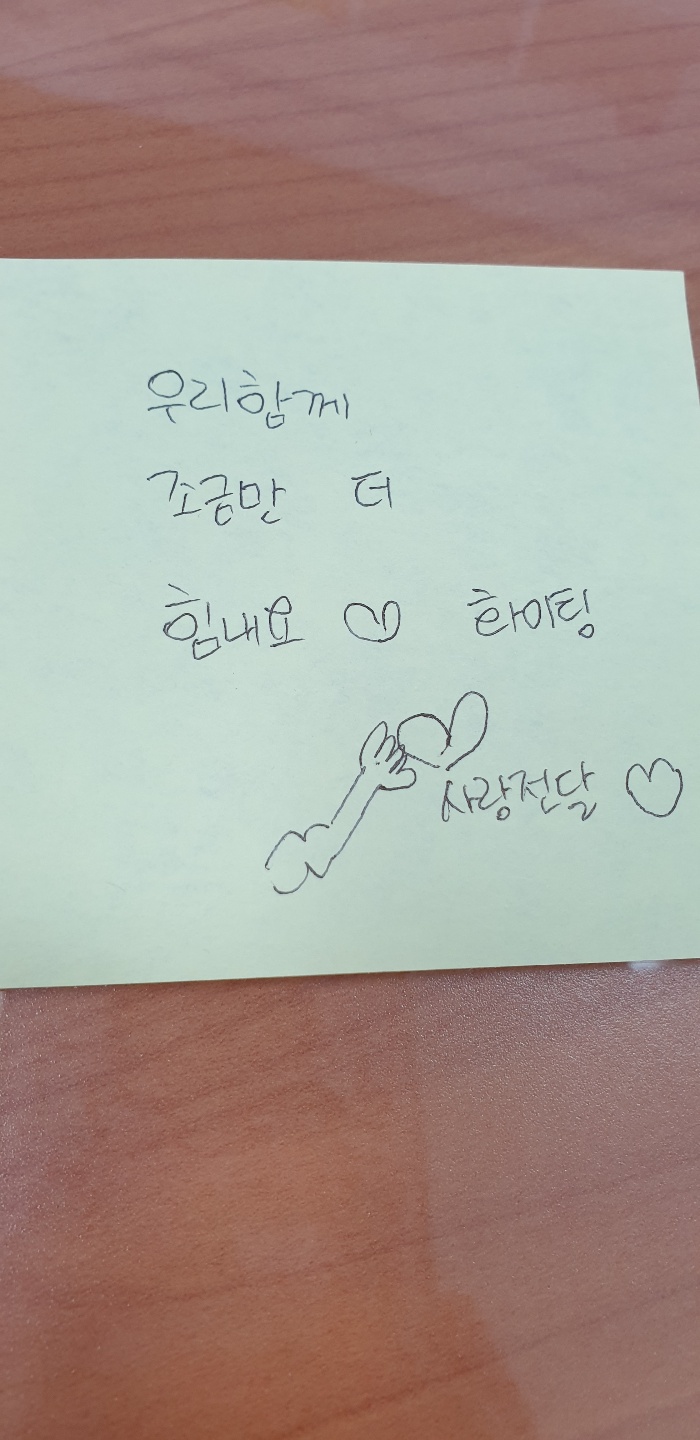 우리함께
조금만 더
힘내요 ♡ 화이팅
사랑전달 ♡